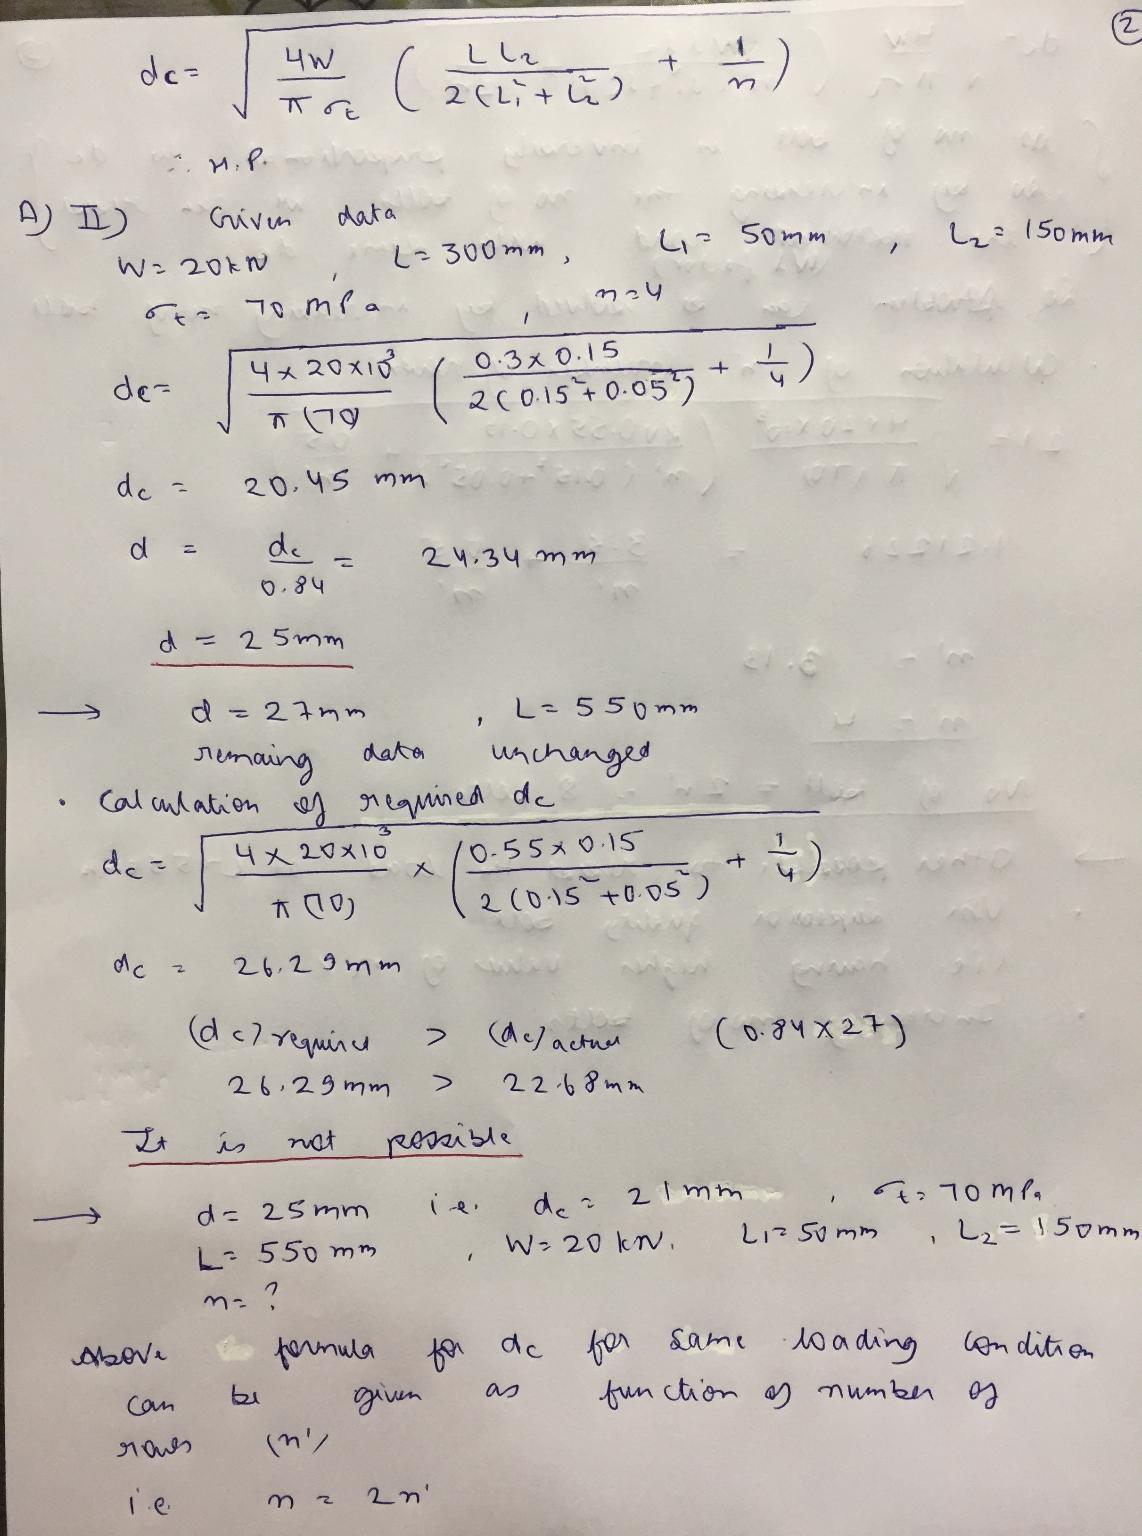 ②
dc = √( 4W / πσt ( L L2 / 2(L1² + L2²) + 1/n ) )
∴ H.P.
A) II) Given data
W = 20kN , L = 300mm, L1 = 50mm , L2 = 150mm
σt = 70 mPa , n=4
dc = √( 4 × 20×10³ / π(70) ( 0.3 × 0.15 / 2(0.15² + 0.05²) + 1/4 ) )
dc = 20.45 mm
d = dc / 0.84 = 24.34 mm
d = 25mm
→ d = 27mm , L = 550mm
remaing data unchanged
• Calculation of required dc
dc = √( 4 × 20×10³ / π(70) × ( 0.55 × 0.15 / 2(0.15² + 0.05²) + 1/4 ) )
dc = 26.29mm
(dc) required > (dc) actual (0.84 × 27)
26.29mm > 22.68mm
It is not possible
→ d = 25mm i.e. dc = 21mm , σt = 70 mPa
L = 550 mm , W = 20 kN, L1 = 50mm , L2 = 150mm
n = ?
Above formula for dc for same loading condition
can be given as function of number of
rows (n')
i.e. n = 2n'